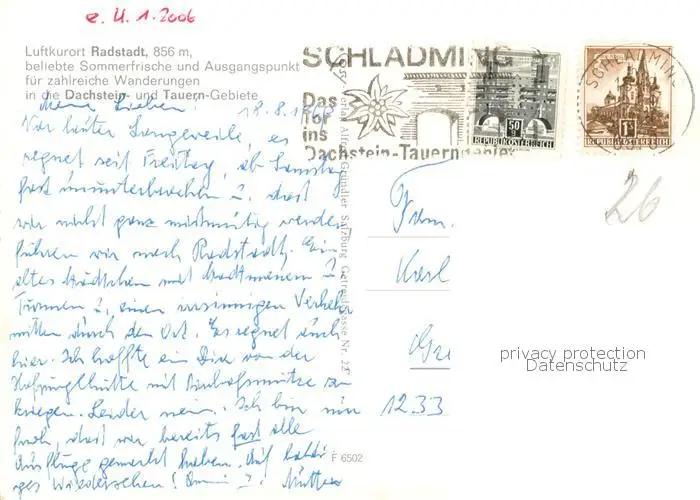 e. U. 1. 2006
Luftkurort Radstadt, 856 m,
beliebte Sommerfrische und Ausgangspunkt
für zahlreiche Wanderungen
in die Dachstein- und Tauern-Gebiete
SCHLADMING
Das
Tor
ins
Dachstein-Tauerngebiet
50
REPUBLIK ÖSTERREICH
SCHLADMING
1S
REPUBLIK ÖSTERREICH
26
Meine Lieben! 18.8.
Vor lauter Langeweile, es
regnet seit Freitag, ab Samstag
fast ununterbrochen u. damit
wir nicht ganz missmutig werden
führen wir nach Radstadt. Ein
altes Städtchen mit Stadtmauern u.
Türmen u. einen irrsinnigen Verkehr
mitten durch den Ort. Es regnet auch
hier. Ich hoffte ein Dia von der
Hofpürglhütte mit Bischofsmütze zu
kriegen. Leider nein. Ich bin nur
froh, dass wir bereits fast alle
Ausflüge gemacht haben. Auf baldi
ges Wiedersehen! Omi u. Mutter
Verlag Alfred Gründler Salzburg Getreidegasse Nr. 22
Fam.
Karl
1233
F 6502
privacy protection
Datenschutz